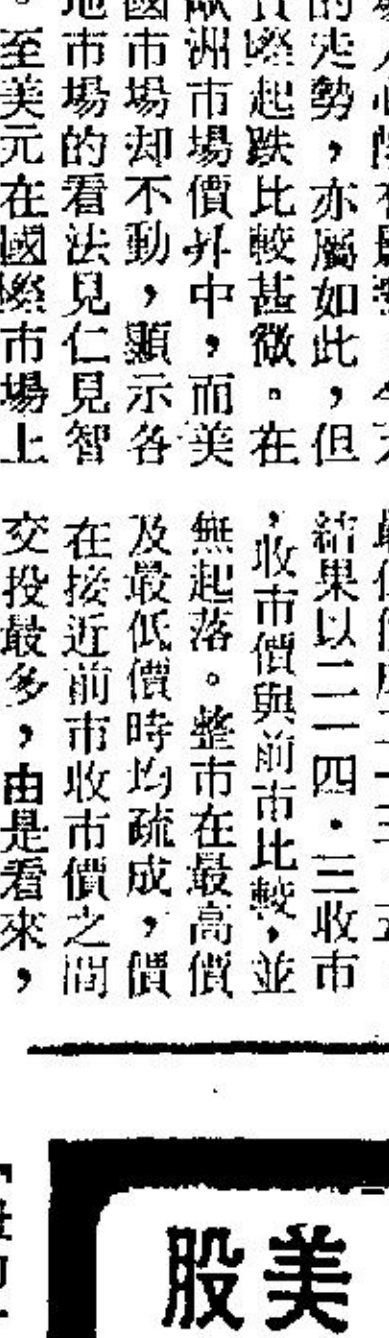 的走勢，亦屬如此，但
起跌比較甚微。在
洲市場價昇中，而美
國市場却不動，顯示各
地市場的看法見仁見智
。至美元在國際市場上
結果以二一四·三收市
，收市價與前市比較，並
無起落。整市在最高價
及最低價時均疏成，價
在接近前市收市價之間
交投最多，由是看來，
美股